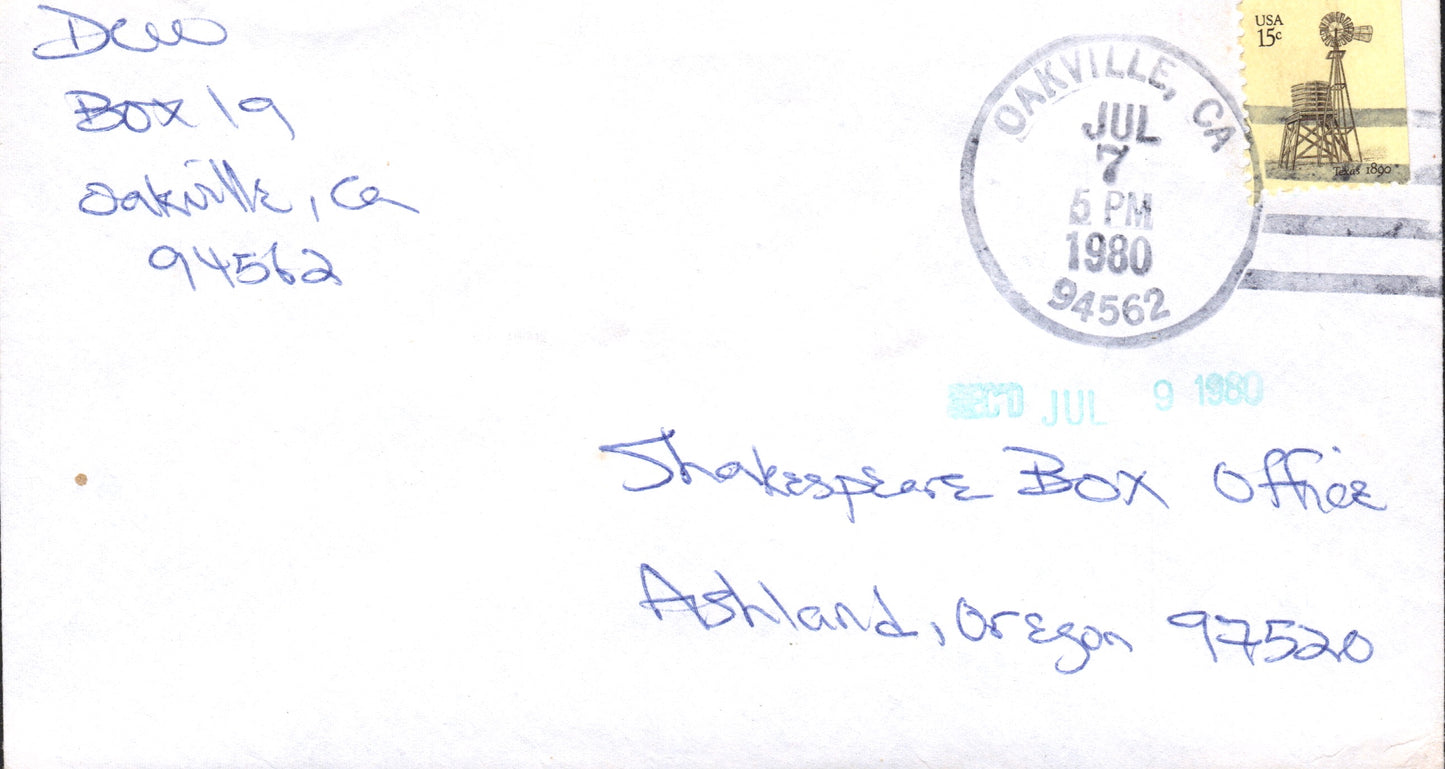 Box 19
Oakville, Ca
94562
OAKVILLE, CA
JUL
7
5 PM
1980
94562
USA
15c
Texas 1890
REC'D JUL 9 1980
Shakespeare Box Office
Ashland, Oregon 97520